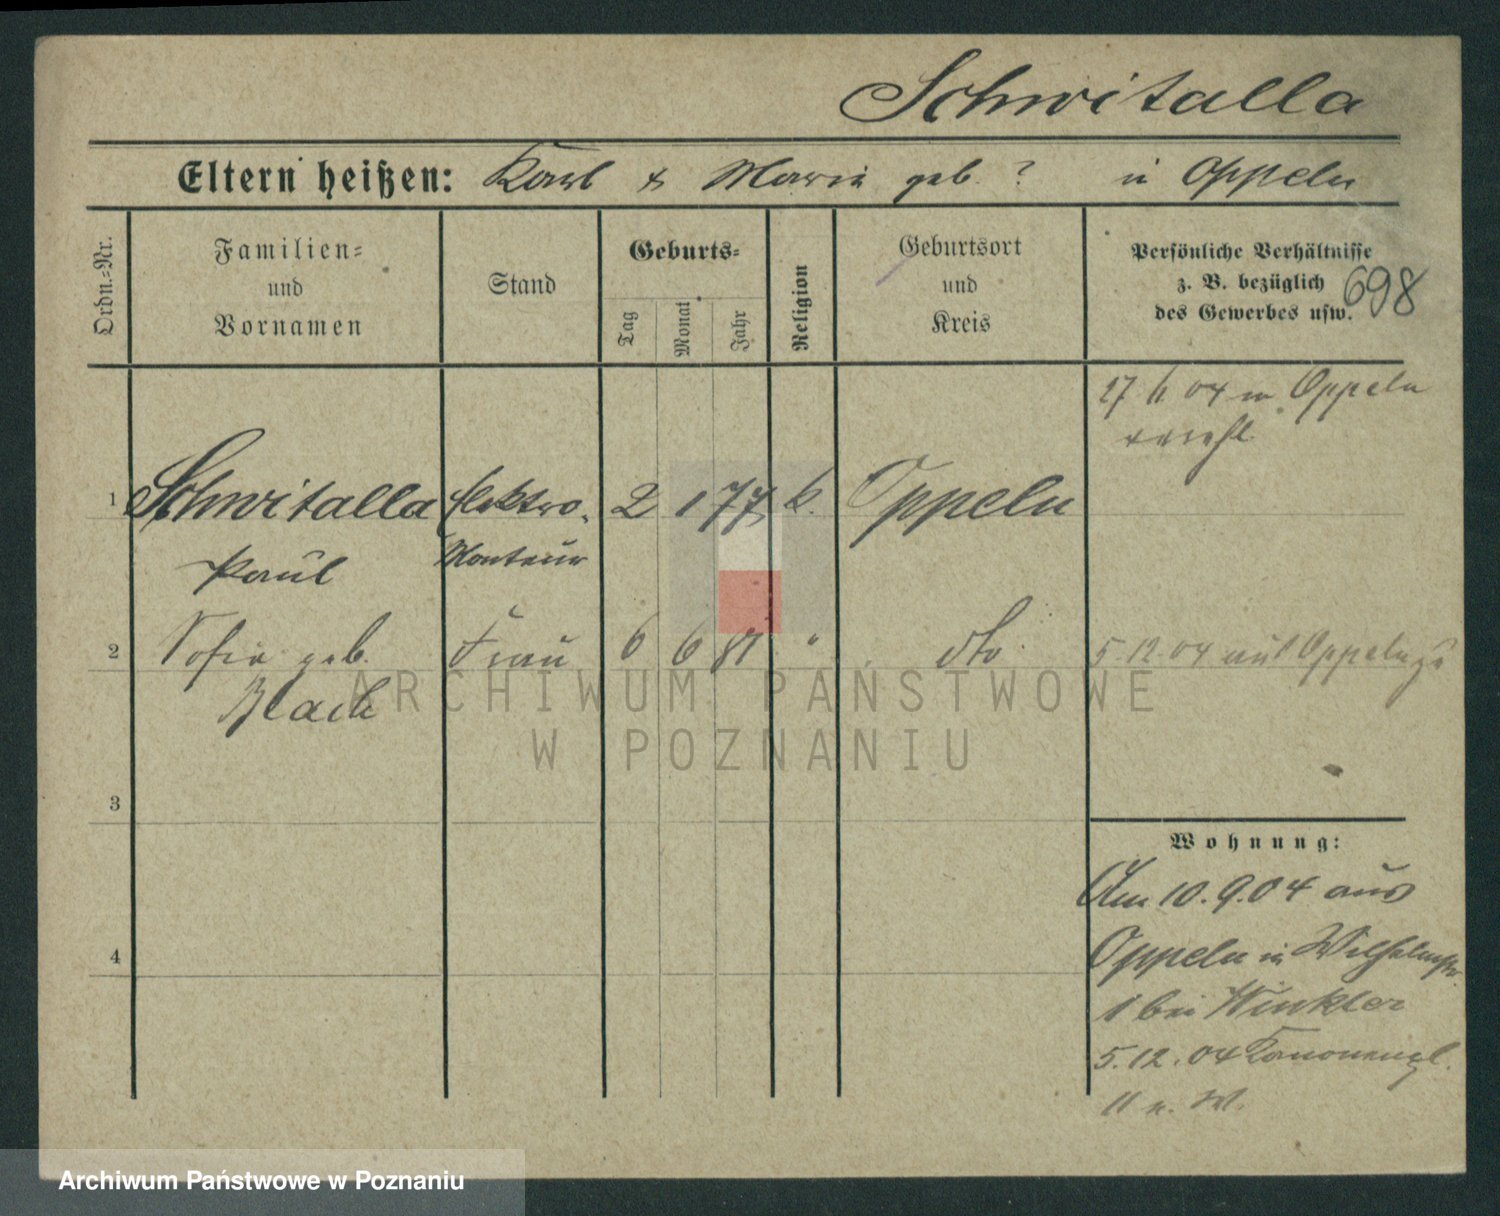 Schwitalla
Eltern heißen: Karl & Marie geb. ? in Oppeln
Ordn.=Nr.
Familien=
und
Vornamen
Stand
Geburts=
Tag
Monat
Jahr
Religion
Geburtsort
und
Kreis
Persönliche Verhältnisse
z. B. bezüglich
des Gewerbes usw.
698
17 11 04 in Oppeln
verehl.
1 Schwitalla Elektro- 2 1 77 k. Oppeln
Paul Monteur
2 Sofie geb. Frau 6 6 81 " dto. 5.12.04 aus Oppeln
Blach
ARCHIWUM PAŃSTWOWE
W POZNANIU
3
Wohnung:
Am 10.9.04 aus
4
Oppeln in Wilhelmstr
1 bei Winkler
5.12.04 Kanonenpl.
11 n. W.
Archiwum Państwowe w Poznaniu